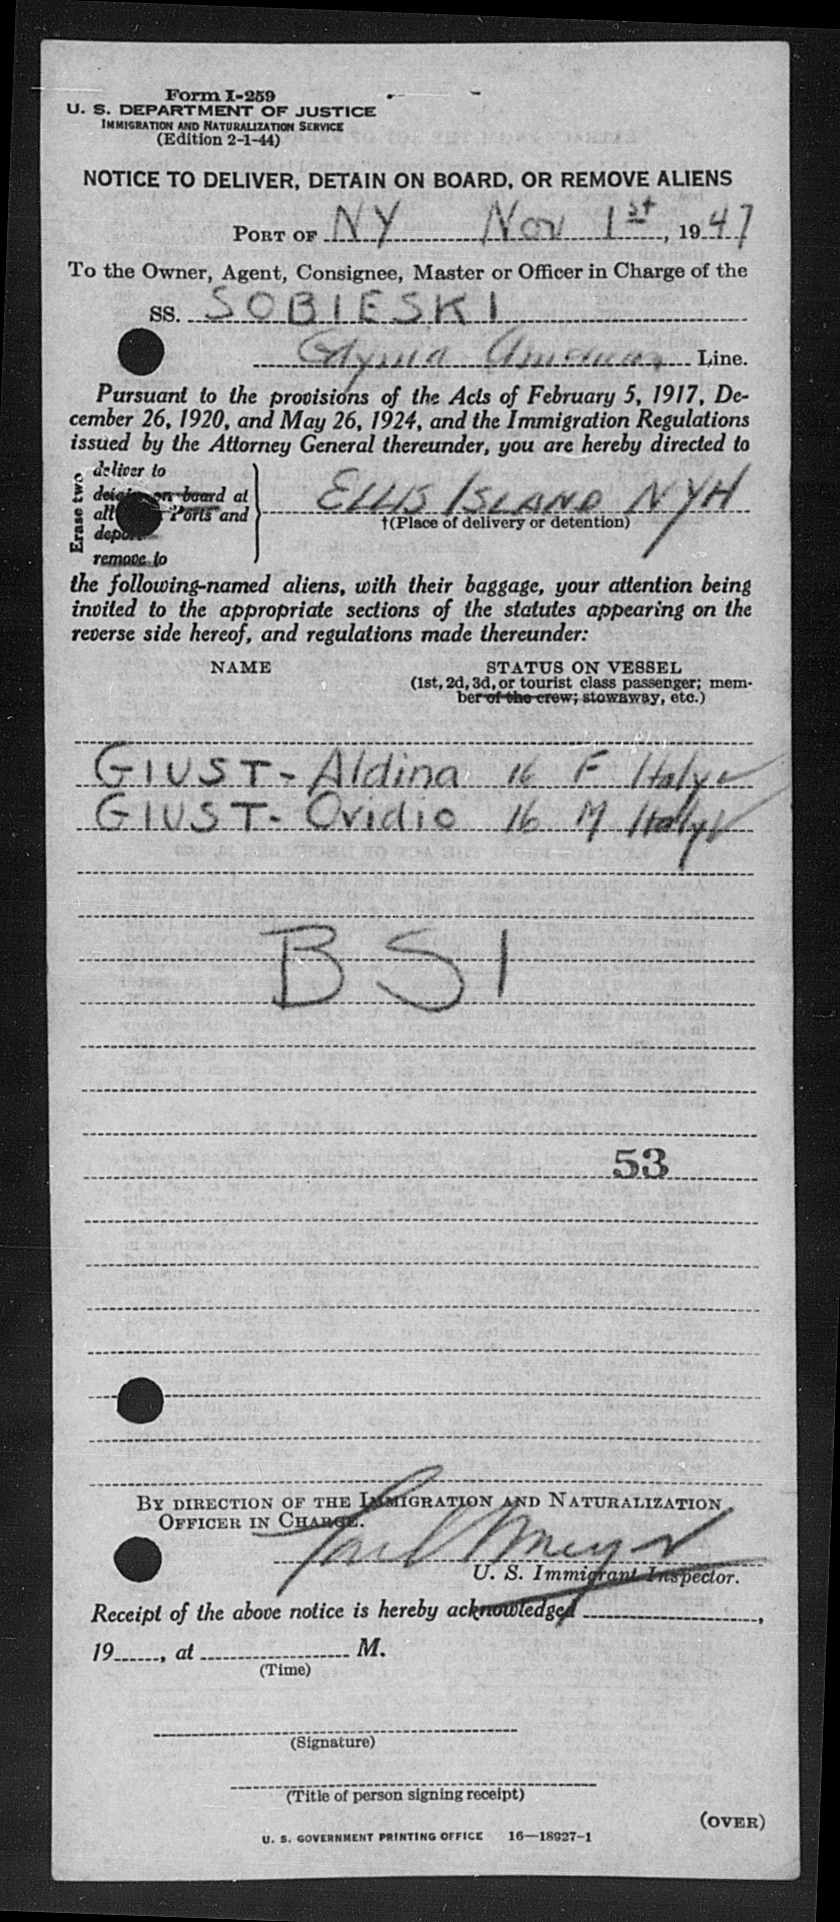 Form I-259
U. S. DEPARTMENT OF JUSTICE
IMMIGRATION AND NATURALIZATION SERVICE
(Edition 2-1-44)
NOTICE TO DELIVER, DETAIN ON BOARD, OR REMOVE ALIENS
PORT OF NY Nov 1st, 1947
To the Owner, Agent, Consignee, Master or Officer in Charge of the
SS. SOBIESKI
Gdynia American Line.
Pursuant to the provisions of the Acts of February 5, 1917, De-
cember 26, 1920, and May 26, 1924, and the Immigration Regulations
issued by the Attorney General thereunder, you are hereby directed to
Erase two
deliver to
detain on board at
all Ports and
deport
remove to
ELLIS ISLAND NYH
†(Place of delivery or detention)
the following-named aliens, with their baggage, your attention being
invited to the appropriate sections of the statutes appearing on the
reverse side hereof, and regulations made thereunder:
NAME STATUS ON VESSEL
(1st, 2d, 3d, or tourist class passenger; mem-
ber of the crew; stowaway, etc.)
GIUST - Aldina 16 F Italy
GIUST - Ovidio 16 M Italy
BSI
53
BY DIRECTION OF THE IMMIGRATION AND NATURALIZATION
OFFICER IN CHARGE.
U. S. Immigrant Inspector.
Receipt of the above notice is hereby acknowledged ,
19 , at M.
(Time)
(Signature)
(Title of person signing receipt)
(OVER)
U. S. GOVERNMENT PRINTING OFFICE 16—18927-1